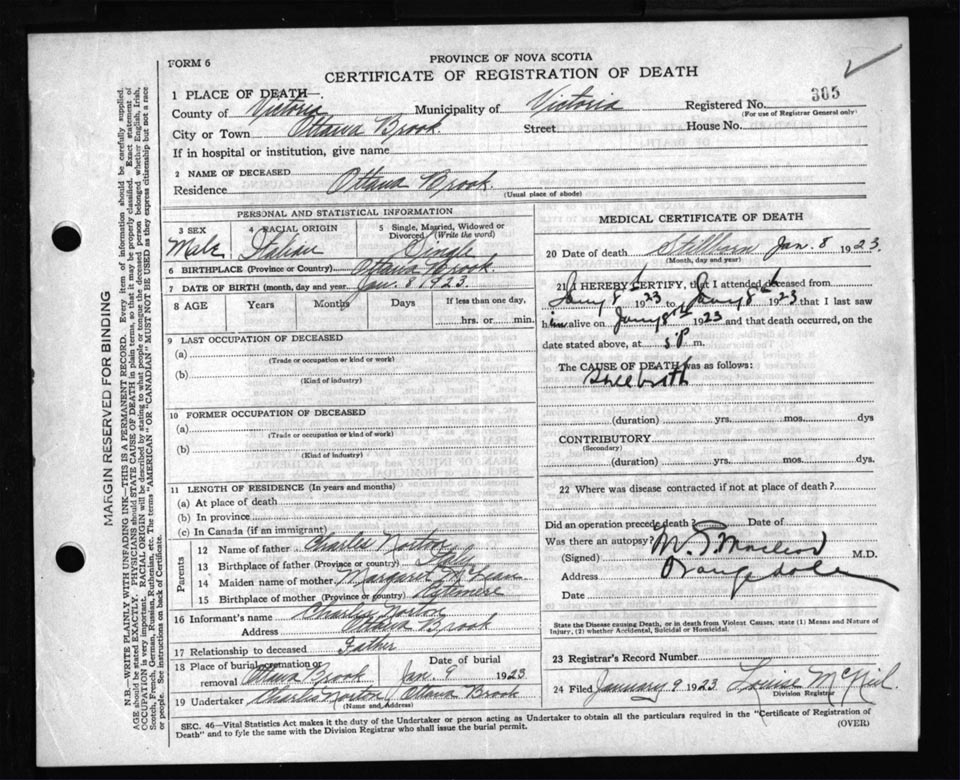 FORM 6
PROVINCE OF NOVA SCOTIA
CERTIFICATE OF REGISTRATION OF DEATH
1 PLACE OF DEATH—
County of Victoria Municipality of Victoria Registered No. 305
(For use of Registrar General only)
City or Town Ottawa Brook Street House No.
If in hospital or institution, give name
2 NAME OF DECEASED
Residence Ottawa Brook.
(Usual place of abode)
PERSONAL AND STATISTICAL INFORMATION
3 SEX 4 RACIAL ORIGIN 5 Single, Married, Widowed or
Divorced (Write the word)
Male Italian Single
6 BIRTHPLACE (Province or Country) Ottawa Brook.
7 DATE OF BIRTH (month, day and year) Jan. 8 1923.
8 AGE Years Months Days If less than one day,
hrs. or min.
9 LAST OCCUPATION OF DECEASED
(a)
(Trade or occupation or kind or work)
(b)
(Kind of industry)
10 FORMER OCCUPATION OF DECEASED
(a)
(Trade or occupation or kind or work)
(b)
(Kind of industry)
11 LENGTH OF RESIDENCE (In years and months)
(a) At place of death
(b) In province
(c) In Canada (if an immigrant)
Parents
12 Name of father Charles Norton
13 Birthplace of father (Province or country) Italy
14 Maiden name of mother Margaret McLean
15 Birthplace of mother (Province or country)
16 Informant's name Charles Norton
Address Ottawa Brook
17 Relationship to deceased Father
18 Place of burial, cremation or Date of burial
removal Ottawa Brook Jan. 9 1923
19 Undertaker Charles Norton Ottawa Brook
(Name and Address)
MEDICAL CERTIFICATE OF DEATH
20 Date of death Stillborn Jan. 8 1923.
(Month, day and year)
21 I HEREBY CERTIFY, that I attended deceased from
Jany 8th 1923 to Jany 8th 1923 that I last saw
him alive on Jany 8th 1923 and that death occurred, on
the date stated above, at P m.
The CAUSE OF DEATH was as follows:
(duration) yrs. mos. dys
CONTRIBUTORY
(Secondary)
(duration) yrs. mos. dys.
22 Where was disease contracted if not at place of death?
Did an operation precede death? Date of
Was there an autopsy?
(Signed) Macleod M.D.
Address Orangedale
Date
State the Disease causing Death, or in death from Violent Causes, state (1) Means and Nature of
Injury, (2) whether Accidental, Suicidal or Homicidal.
23 Registrar's Record Number
24 Filed January 9 1923 Louise McNeil.
Division Registrar
SEC. 46—Vital Statistics Act makes it the duty of the Undertaker or person acting as Undertaker to obtain all the particulars required in the "Certificate of Registration of
Death" and to fyle the same with the Division Registrar who shall issue the burial permit. (OVER)
MARGIN RESERVED FOR BINDING
N.B.—WRITE PLAINLY WITH UNFADING INK—THIS IS A PERMANENT RECORD. Every item of information should be carefully supplied.
AGE should be stated EXACTLY. PHYSICIANS should STATE CAUSE OF DEATH in plain terms, so that it may be properly classified. Exact statement of
OCCUPATION is very important. RACIAL ORIGIN will be described by stating to what people or tongue the deceased person belonged whether English, Irish,
Scotch, French, German, Russian, Ruthenian, etc. The terms "AMERICAN" OR "CANADIAN" MUST NOT BE USED as they express citizenship but not a race
or people. See instructions on back of Certificate.